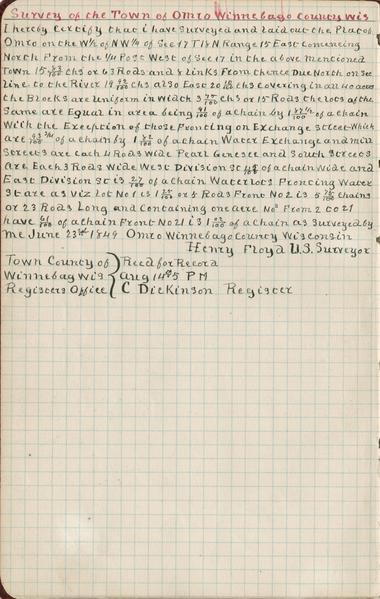 Survey of the Town of Omro Winnebago County Wis
I hereby Certify that i have Surveyed and laid out the Plat of
Omro on the W½ of NW¼ of Sec 17 T18 N Range 15 East Comencing
North From the ¼ Post West of Sec 17 in the above Mentioned
Town 15 chs or 63 Rods and 8 Links From thence Due North on Sec
Line to the River 19 chs also East 20 chs Covering in all 40 acres
the Blocks are Uniform in Width 3 75/100 chs or 15 Rods the lots of the
Same are Equal in area being of a chain by 1 of a chain
With the Exception of those Fronting on Exchange Street Which
are of a chain by 1 of a chain Water Exchange and Main
Streets are each 4 Rods Wide Pearl Genesee and South Streets
are Each 3 Rods Wide West Division St of a chain Wide and
East Division St is of a chain Water lots Fronting Water
St are as Viz lot No 1 is 1 or 5 Rods Front No 2 is 5 chains
or 23 Rods Long and Containing one acre Nos From 2 to 21
have of a chain Front No 21 is 1 of a chain as Surveyed by
me June 23rd 1849 Omro Winnebago County Wisconsin
Henry Floyd U.S. Surveyor
Town County of } Recd for Record
Winnebag Wis } Aug 14th 5 PM
Registers Office } C Dickinson Register